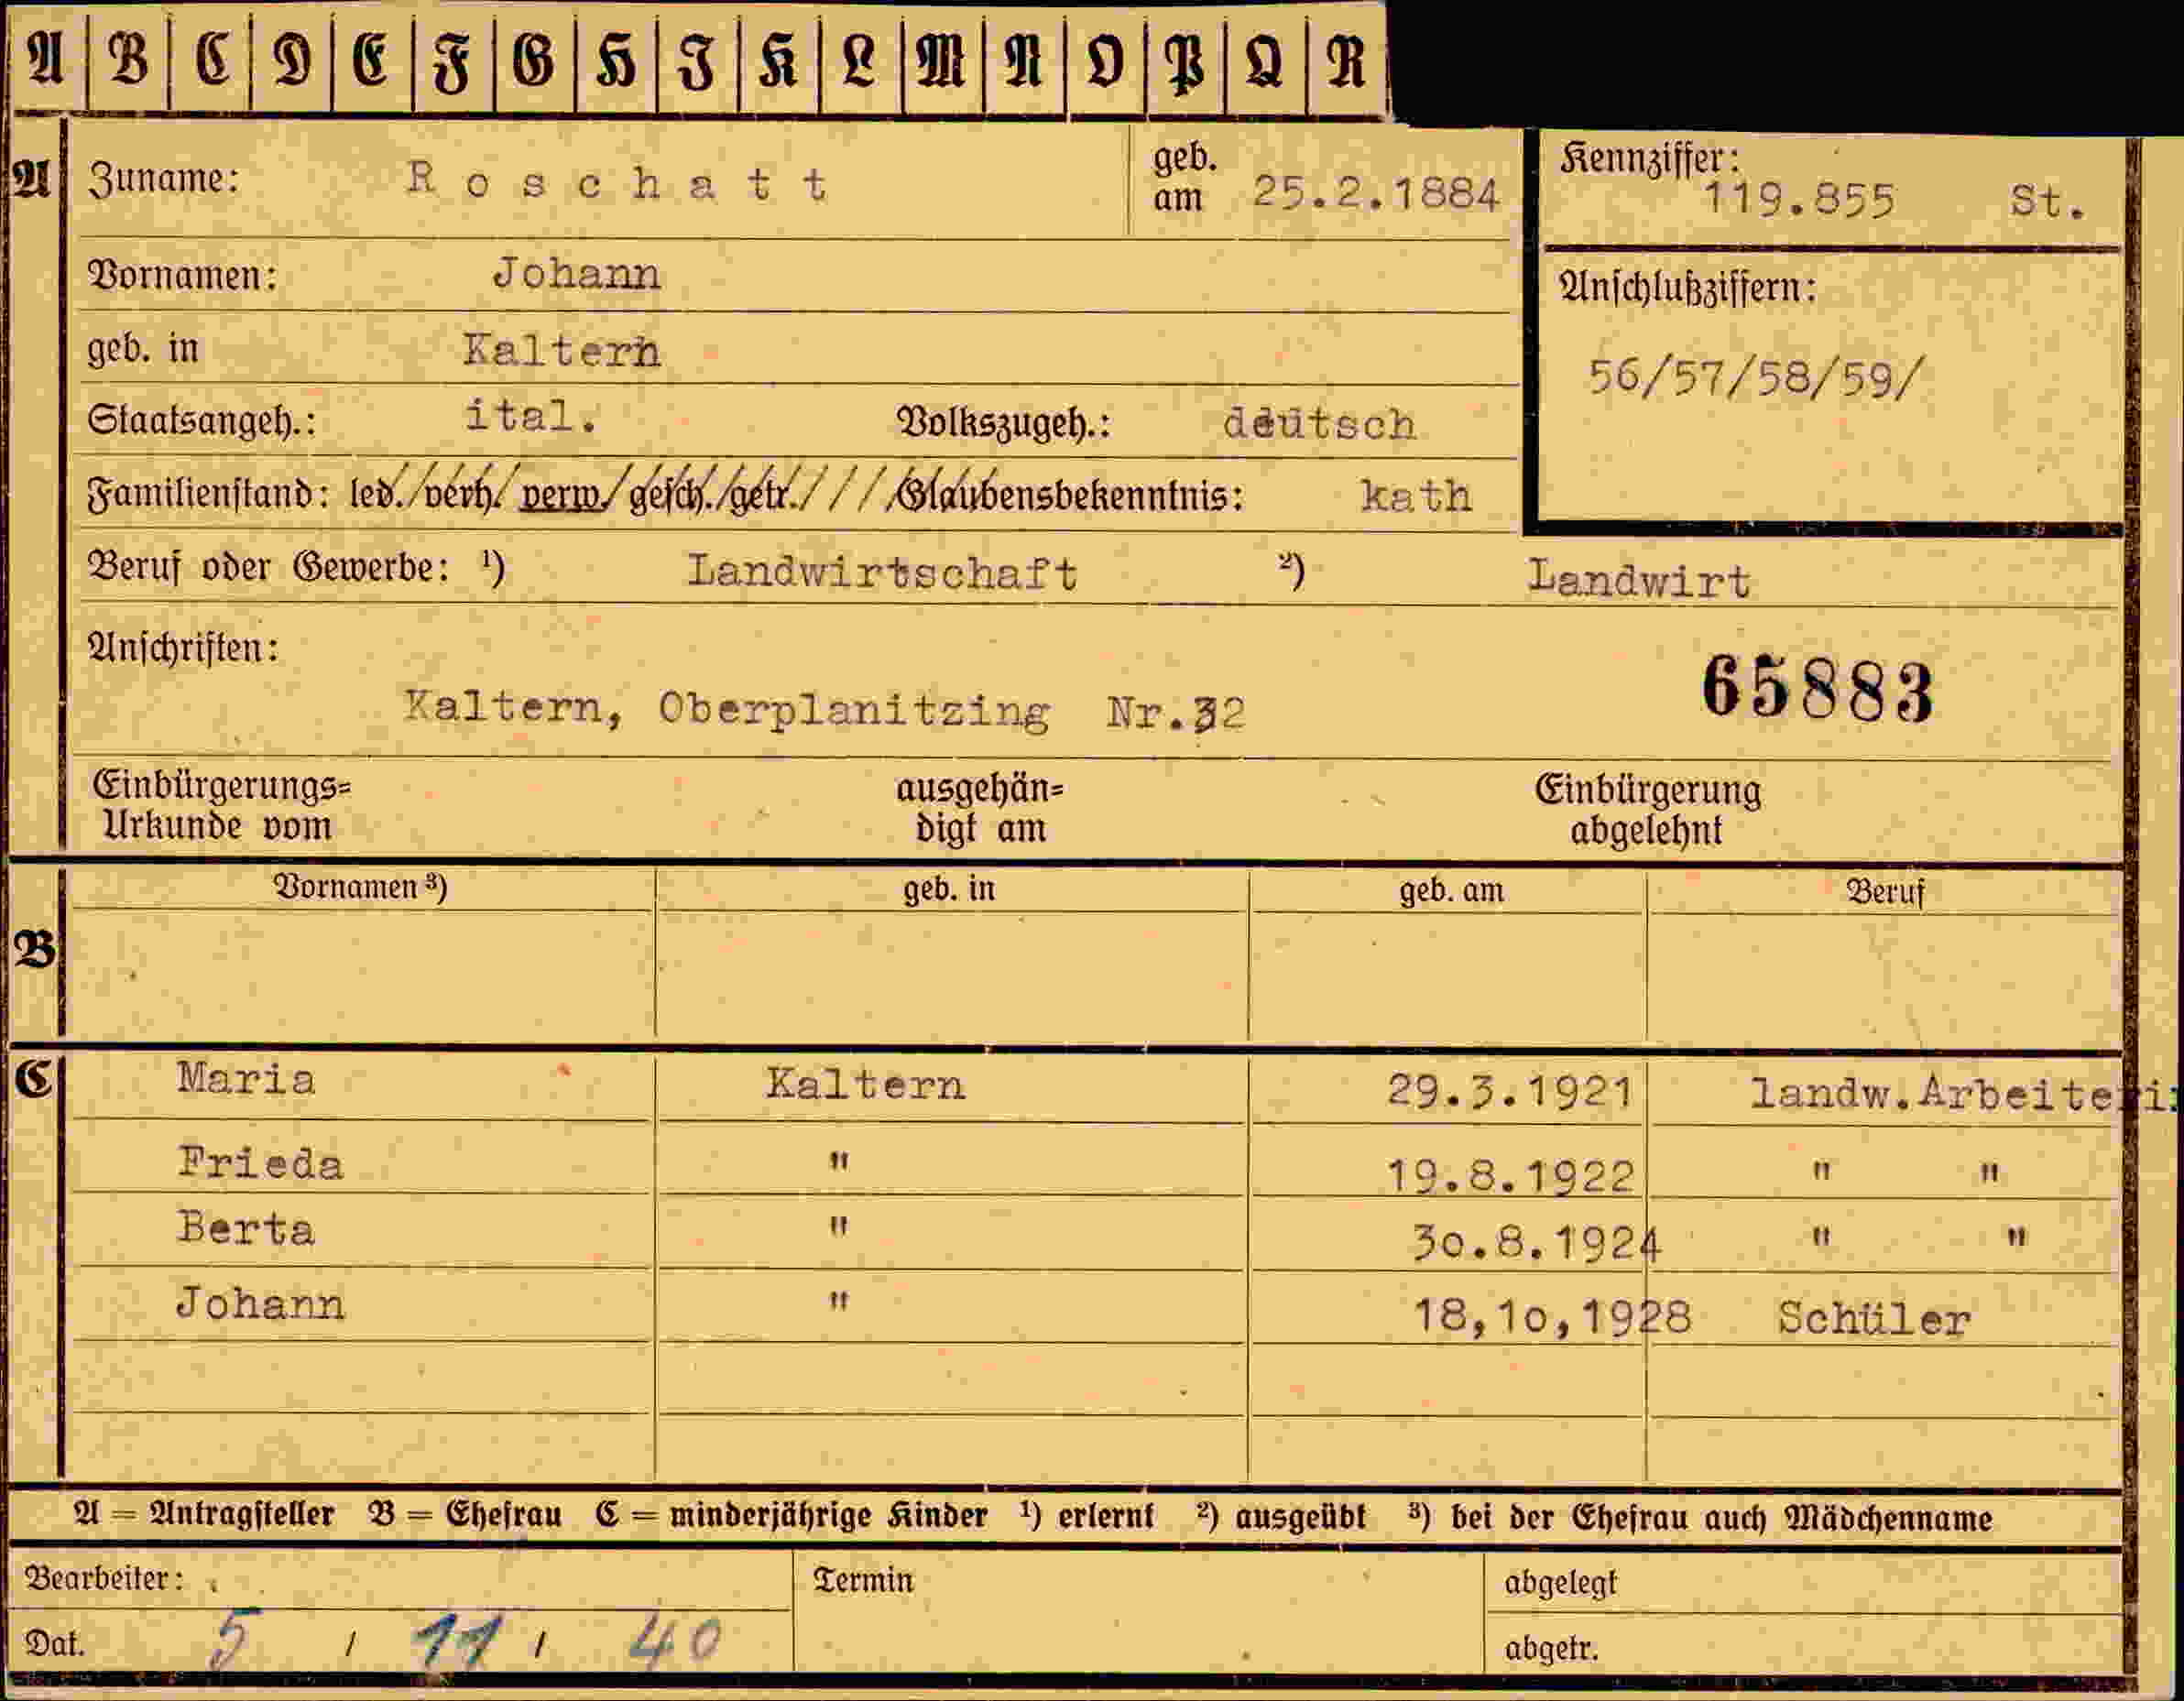 A B C D E F G H I K L M N O P Q R
A Zuname: Roschatt geb. am 25.2.1884 Kennziffer: 119.855 St.
Vornamen: Johann
Anschlußziffern:
geb. in Kaltern
56/57/58/59/
Staatsangeh.: ital. Volkszugeh.: deutsch
Familienstand: led./verh./verw./gesch./getr./ / / /Glaubensbekenntnis: kath
Beruf oder Gewerbe: ¹) Landwirtschaft ²) Landwirt
Anschriften:
65883
Kaltern, Oberplanitzing Nr.32
Einbürgerungs= ausgehän= Einbürgerung
Urkunde vom digt am abgelehnt
Vornamen ³) geb. in geb. am Beruf
B
C Maria Kaltern 29.3.1921 landw.Arbeiteri
Frieda " 19.8.1922 " "
Berta " 30.8.1924 " "
Johann " 18,10,1928 Schüler
A = Antragsteller B = Ehefrau C = minderjährige Kinder ¹) erlernt ²) ausgeübt ³) bei der Ehefrau auch Mädchenname
Bearbeiter: Termin abgelegt
Dat. 5 / 11 / 40 abgetr.